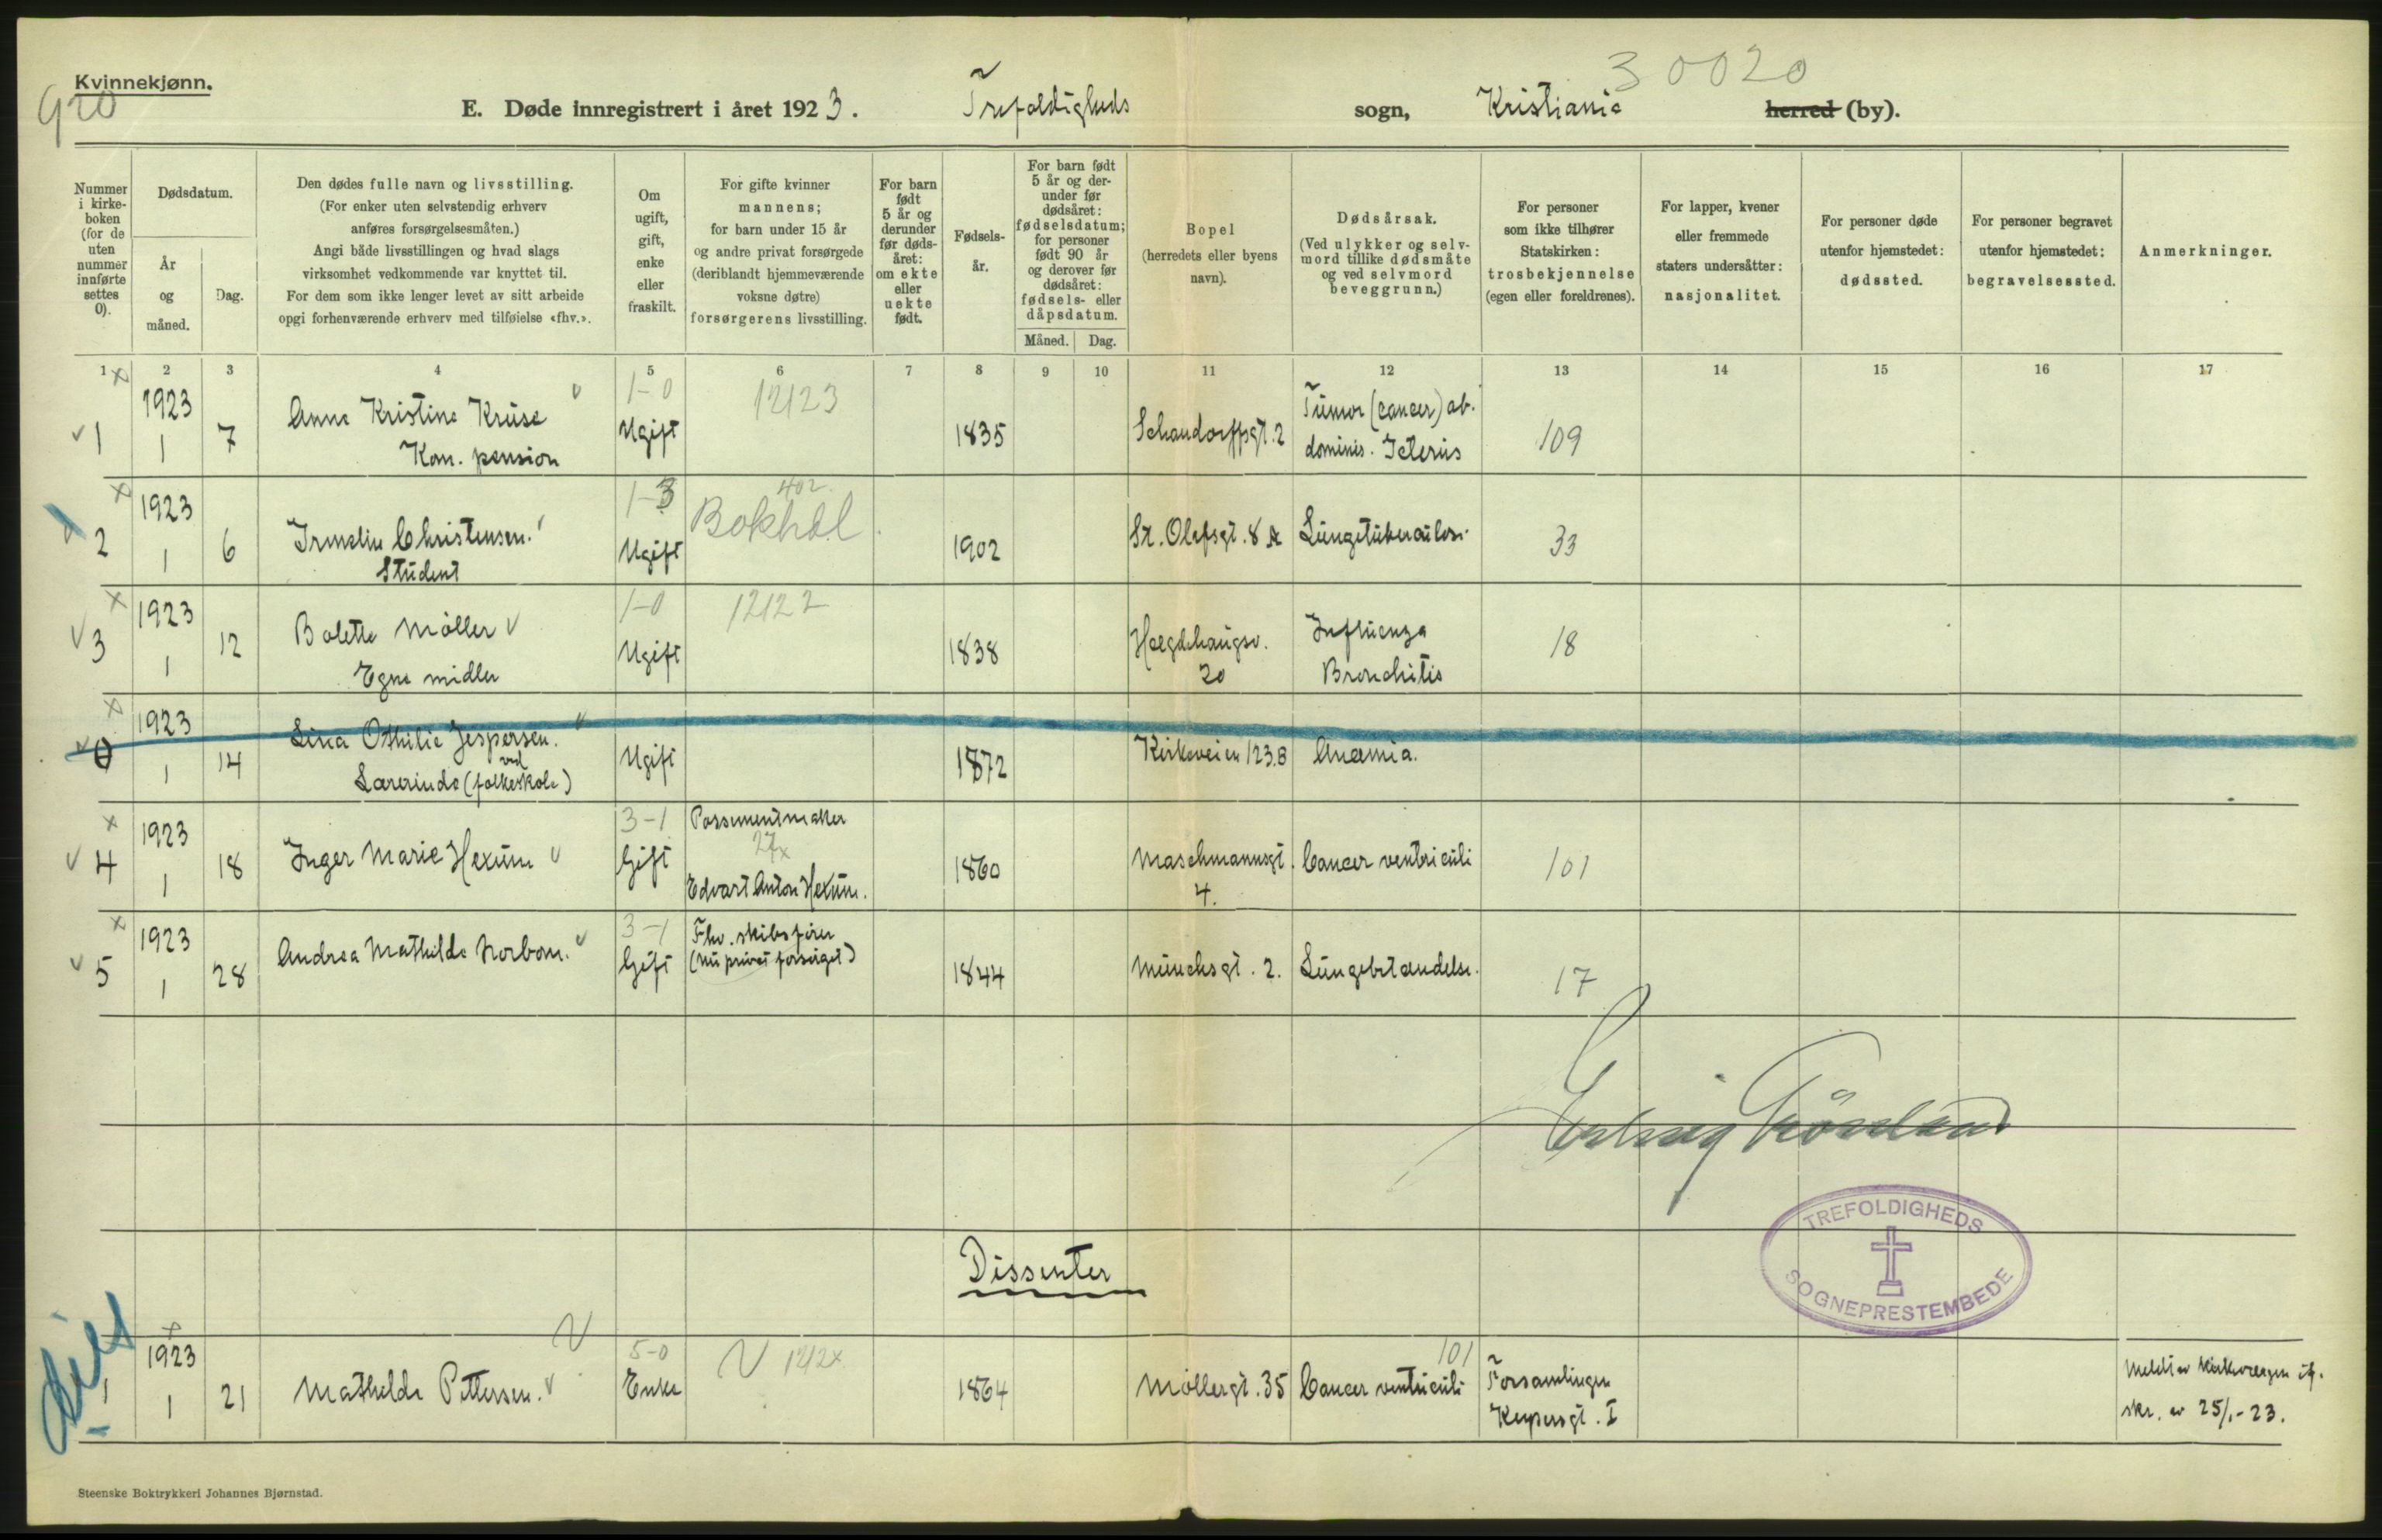 Kvinnekjønn.
920
30020
E. Døde innregistrert i året 1923. Trefoldigheds sogn, Kristiania herred (by).
Nummer i kirkeboken (for de uten nummer innførte settes 0).
Dødsdatum.
År og måned.
Dag.
Den dødes fulle navn og livsstilling.
(For enker uten selvstendig erhverv
anføres forsørgelsesmåten.)
Angi både livsstillingen og hvad slags
virksomhet vedkommende var knyttet til.
For dem som ikke lenger levet av sitt arbeide
opgi forhenværende erhverv med tilføielse «fhv.».
Om ugift, gift, enke eller fraskilt.
For gifte kvinner
mannens;
for barn under 15 år
og andre privat forsørgede
(deriblandt hjemmeværende
voksne døtre)
forsørgerens livsstilling.
For barn født 5 år og derunder før dødsåret: om ekte eller uekte født.
Fødselsår.
For barn født 5 år og derunder før dødsåret: fødselsdatum; for personer født 90 år og derover før dødsåret: fødsels- eller dåpsdatum.
Måned. Dag.
Bopel
(herredets eller byens
navn).
Dødsårsak.
(Ved ulykker og selvmord tillike dødsmåte og ved selvmord beveggrunn.)
For personer
som ikke tilhører
Statskirken:
trosbekjennelse
(egen eller foreldrenes).
For lapper, kvener
eller fremmede
staters undersåtter:
nasjonalitet.
For personer døde
utenfor hjemstedet:
dødssted.
For personer begravet
utenfor hjemstedet:
begravelsessted.
Anmerkninger.
1 2 3 4 5 6 7 8 9 10 11 12 13 14 15 16 17
1 1923 1 7 Anna Kristine Kruse 1-0 Ugift 12123 1835 Schandorffsgt. 2 Tumor (cancer) ab-
Kom. pension dominis. Icterus 109
2 1923 1 6 Irmelin Christensen. 1-3 Ugift 402 Bokhol 1902 St. Olafsgt. 8 A Lungetuberculos. 33
Student
3 1923 1 12 Bolette Møller 1-0 Ugift 12122 1838 Hægdehaugsv. 20 Influenza 18
Egne midler Bronchitis
0 1923 1 14 Lina Othilie Jespersen. Ugift 1872 Kirkeveien 123.B Anæmia.
Lærerinde (ved folkeskole)
4 1923 1 18 Inger Marie Hexum 3-1 Gift Possementmaker 27x Edvart Anton Hexum. 1860 Maschmannsgt. 4. Cancer ventriculi 101
5 1923 1 28 Andrea Mathilde Norbom. 3-1 Gift Fhv. skibsfører (nu privat forsørget) 1844 Munchsgt. 2. Lungebetændelse. 17
TREFOLDIGHEDS
SOGNEPRESTEMBEDE
Dissenter
Diss
1 1923 1 21 Mathilde Pettersen. 5-0 Enke 1212x 1864 Møllergt. 35 Cancer ventriculi 101 Forsamlingen
Keysersgt. I
skr. av 25/1-23.
Steenske Boktrykkeri Johannes Bjørnstad.